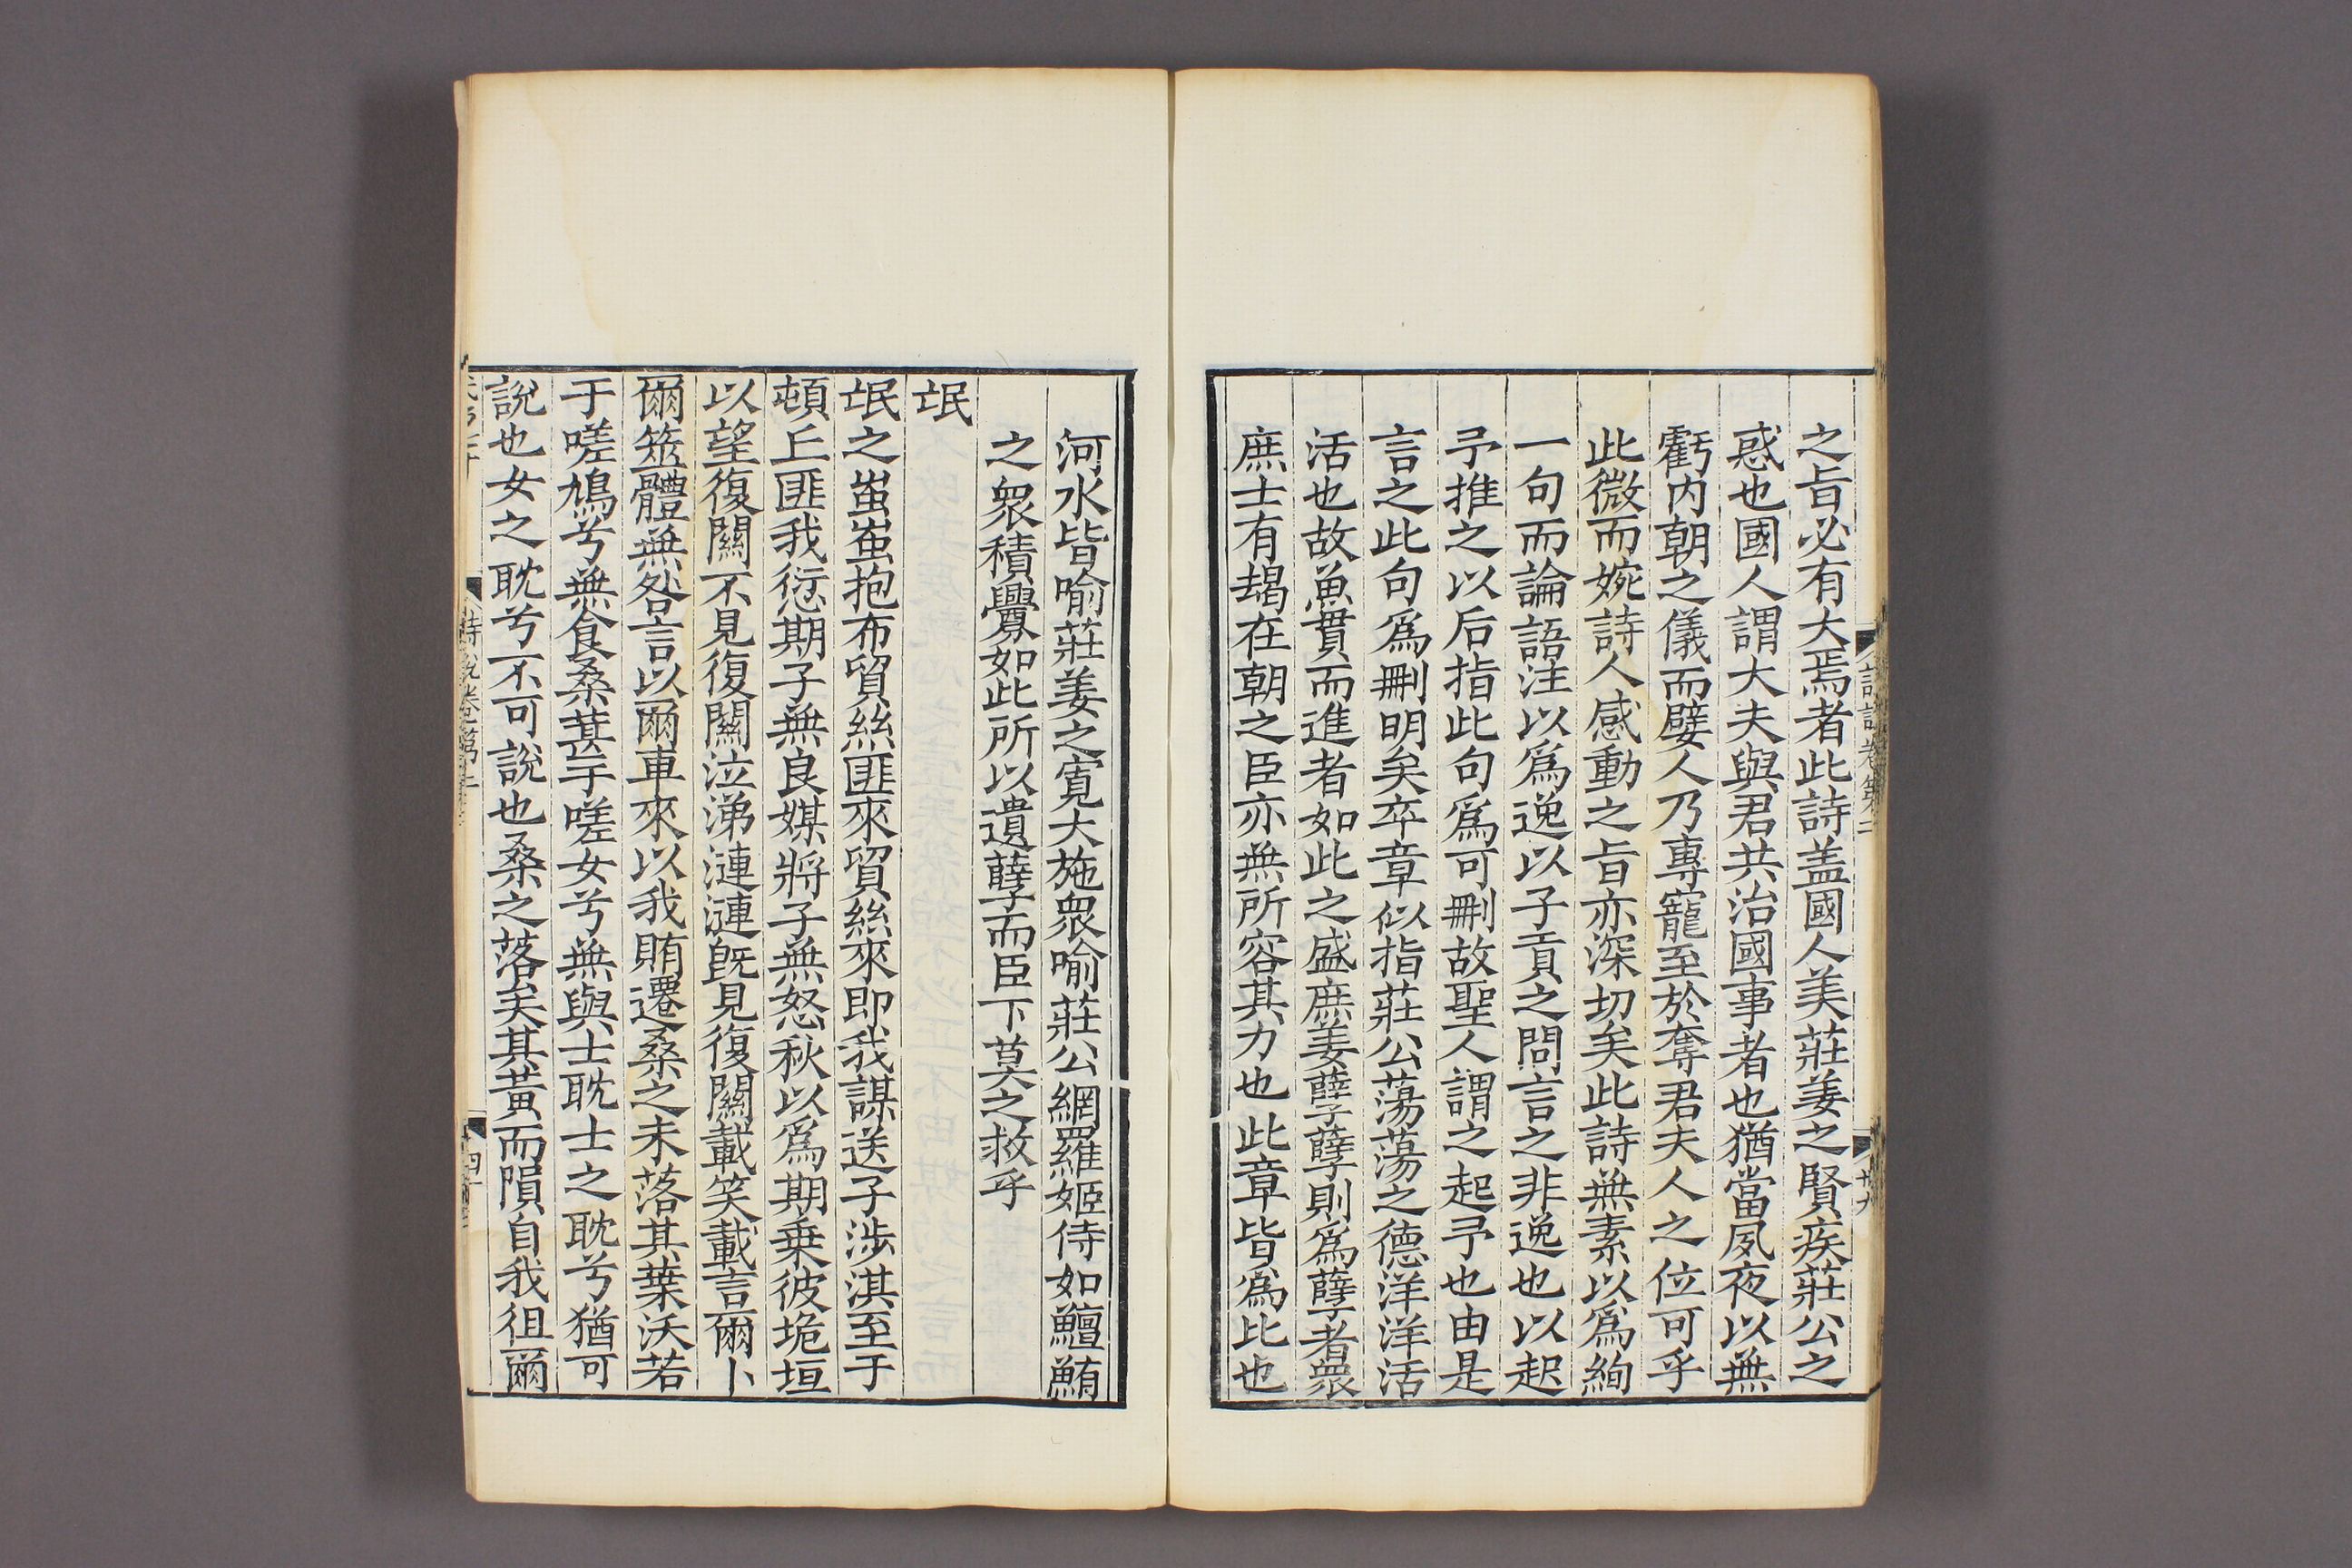 之旨必有大焉者此詩盖國人美莊姜之賢疾莊公之
惑也國人謂大夫與君共治國事者也猶當夙夜以無
虧内朝之儀而嬖人乃專寵至於奪君夫人之位可乎
此微而婉詩人感動之旨亦深切矣此詩無素以爲絢
一句而論語注以爲逸以子貢之問言之非逸也以起
予推之以后指此句爲可刪故聖人謂之起予也由是
言之此句爲刪明矣卒章似指莊公蕩蕩之德洋洋活
活也故魚貫而進者如此之盛庶姜孽孽則爲孽者衆
庶士有朅在朝之臣亦無所容其力也此章皆爲比也
詩說卷第二
卅九
河水皆喻莊姜之寬大施衆喻莊公網羅姬侍如鱣鮪
之衆積釁如此所以遺孽而臣下莫之救乎
氓
氓之蚩蚩抱布貿絲匪來貿絲來即我謀送子涉淇至于
頓丘匪我愆期子無良媒將子無怒秋以爲期乗彼垝垣
以望復關不見復關泣涕漣漣旣見復關載笑載言爾卜
爾筮體無咎言以爾車來以我賄遷桑之未落其葉沃若
于嗟鳩兮無食桑葚于嗟女兮無與士耽士之耽兮猶可
說也女之耽兮不可說也桑之落矣其黃而隕自我徂爾
詩說卷第二
四十